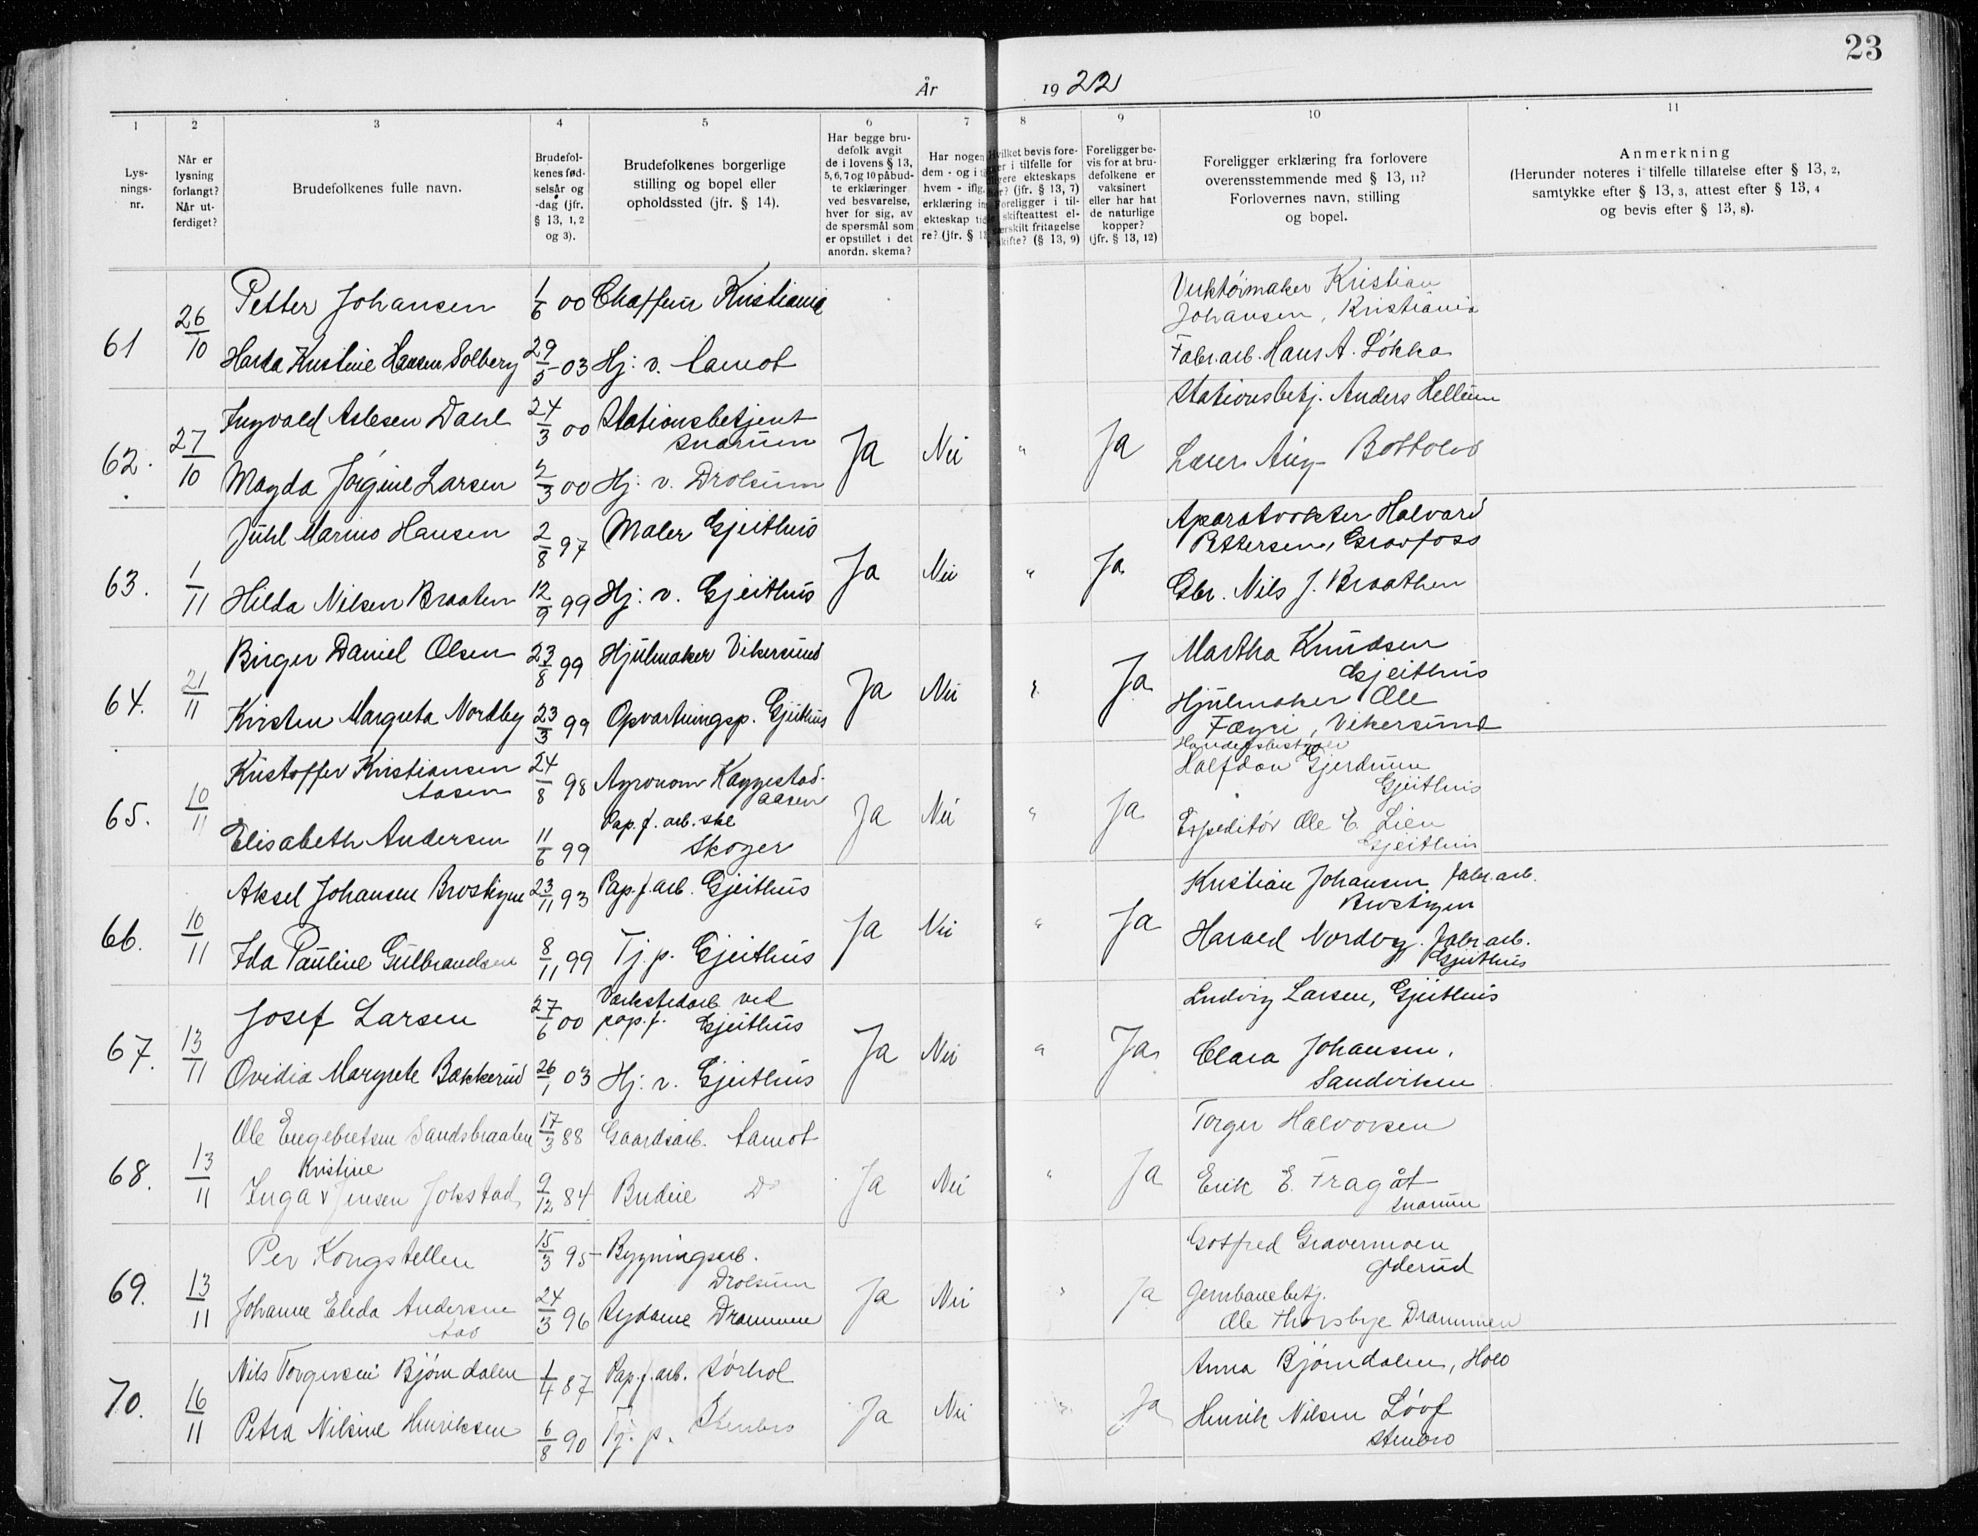 23
År 1922
1 2 3 4 5 6 7 8 9 10 11
Lys-
nings-
nr.
Når er
lysning
forlangt?
Når ut-
ferdiget?
Brudefolkenes fulle navn.
Brudefol-
kenes fød-
selsår og
-dag (jfr.
§ 13, 1, 2
og 3).
Brudefolkenes borgerlige
stilling og bopel eller
opholdssted (jfr. § 14).
Har begge bru-
defolk avgit
de i lovens § 13,
5, 6, 7 og 10 påbud-
te erklæringer
ved besvarelse,
hver for sig, av
de spørsmål som
er opstillet i det
anordn. skema?
Har nogen
dem - og i
hvem - iflg.
erklæring
ekteskap
re? (jfr. §
Hvilket bevis fore-
i tilfelle for
ekteskaps
(jfr. § 13, 7)
Foreligger i til-
skifteattest el-
fritagelse
skifte? (§ 13, 9)
Foreligger be-
vis for at bru-
defolkene er
vaksinert
eller har hat
de naturlige
kopper?
(jfr. § 13, 12)
Foreligger erklæring fra forlovere
overensstemmende med § 13, 11?
Forlovernes navn, stilling
og bopel.
Anmerkning
(Herunder noteres i tilfelle tillatelse efter § 13, 2,
samtykke efter § 13, 3, attest efter § 13, 4
og bevis efter § 13, 8).
61 26/10 Petter Johansen 1/6 00 Chaffeur Kristiania
Kristian
Johansen, Kristiania
Kristine Hansen Solberg 29/5 03 Hj: v. Aamot
Fabr.arb. Hans A. Løkka
62. 27/10 Ingvald Aslesen Dahl 24/3 00 Stationsbetjent
Snarum
Ja Nei " Ja Stationsbetj. Anders Hellum
Magda Jørgine Larsen 2/3 00 Hj: v. Drolsum
Lærer Aug.
63. 1/11 Juhl Marius Hansen 2/8 97 Maler Gjeithus
Ja Nei " Ja Halvard
Pettersen, Gravfoss
Hilda Nilsen Braaten 12/9 99 Hj: v. Gjeithus
Gbr. Nils J. Braathen
64. 21/11 Birger Daniel Olsen 23/8 99 Hjulmaker Vikersund
Ja Nei " Ja Martha Knudsen
Gjeithus
Kirsten Margreta Nordby 23/3 99 Opvartningsp. Gjeithus
Hjulmaker Ole
Fægri, Vikersund
65. 10/11 Kristoffer Kristiansen
Aasen
24/8 98 Agronom Kaggestad-
aasen
Ja Nei " Ja Handelsbestyrer
Halfdan Gjerdrum
Gjeithus
Elisabeth Andersen 11/6 99 Pap.f. arb. ske
Skoger
Expeditør Ole E. Lien
Gjeithus
66. 10/11 Aksel Johansen Brostigen 23/11 93 Pap.f.arb. Gjeithus
Ja Nei " Ja Kristian Johansen, fabr.arb.
Brostigen
Ida Pauline Gulbrandsen 8/11 99 Tj. p. Gjeithus
Harald Nordby. Fabr.arb.
Gjeithus
67. 13/11 Josef Larsen 27/6 00 Værkstedarb. ved
pap.f. Gjeithus
Ja Nei " Ja Ludvig Larsen, Gjeithus
Ovidia Margrete Bakkerud 26/1 03 Hj: v. Gjeithus
Clara Johansen,
Sandviken
68. 13/11 Ole Engebretsen Sandsbraaten 17/3 88 Gaardsarb. Aamot
Ja Nei " Ja Torger Halvorsen
Kristine
Inga v Jensen Jokstad 9/12 84 Budeie Do
Erik E. Fragåt
Snarum
69. 13/11 Per Kongstellen 15/3 95 Bygningsarb.
Drolsum
Ja Nei " Ja Gotfred Gravermoen
Johanne Elida Andersen
Aas
24/3 96 Sydame Drammen
Jernbanebetj.
Ole Thorsbye Drammen
70. 16/11 Nils Torgersen Bjørndalen 1/4 87 Pap.f.arb.
Ja Nei " Ja Anna Bjørndalen, Hole
Petra Nilsine Henriksen 6/8 90 Tj. p. Stenbro
Henrik Nilsen
Stenbro